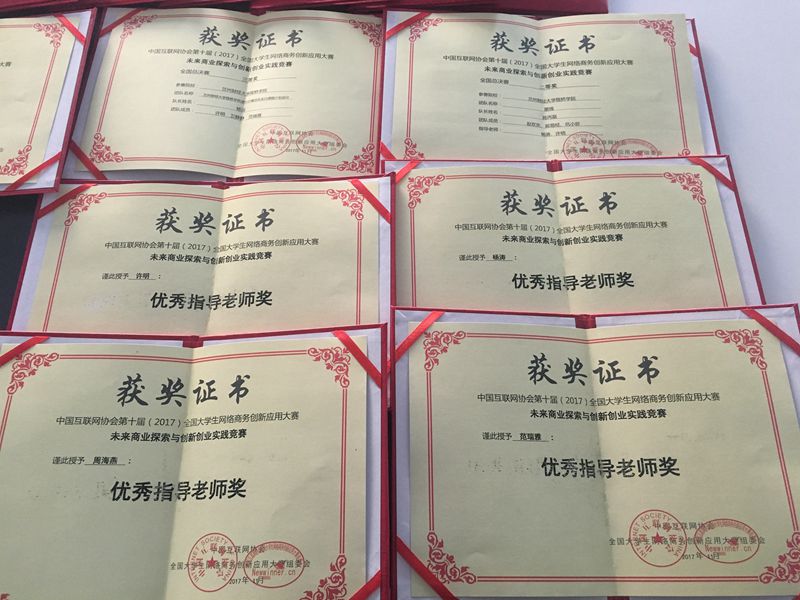 获奖证书
中国互联网协会第十届（2017）全国大学生网络商务创新应用大赛
未来商业探索与创新创业实践竞赛
全国总决赛
参赛院校
团队名称
队长姓名
团队成员
中国互联网协会
获奖证书
中国互联网协会第十届（2017）全国大学生网络商务创新应用大赛
未来商业探索与创新创业实践竞赛
全国总决赛 二等奖
参赛院校
团队名称
队长姓名
团队成员
指导老师 杨涛、许明
中国互联网协会
全国大学生网络商务创新应用大赛组委会
获奖证书
中国互联网协会第十届（2017）全国大学生网络商务创新应用大赛
未来商业探索与创新创业实践竞赛
谨此授予 许明 ：
优秀指导老师奖
获奖证书
中国互联网协会第十届（2017）全国大学生网络商务创新应用大赛
未来商业探索与创新创业实践竞赛
谨此授予 杨涛 ：
优秀指导老师奖
获奖证书
中国互联网协会第十届（2017）全国大学生网络商务创新应用大赛
未来商业探索与创新创业实践竞赛
谨此授予 周海燕 ：
优秀指导老师奖
中国互联网协会
全国大学生网络商务创新应用大赛组委会
Newwinner.cn
2017年11月
获奖证书
中国互联网协会第十届（2017）全国大学生网络商务创新应用大赛
未来商业探索与创新创业实践竞赛
谨此授予 范瑞雅 ：
优秀指导老师奖
中国互联网协会
全国大学生网络商务创新应用大赛组委会
Newwinner.cn
2017年11月